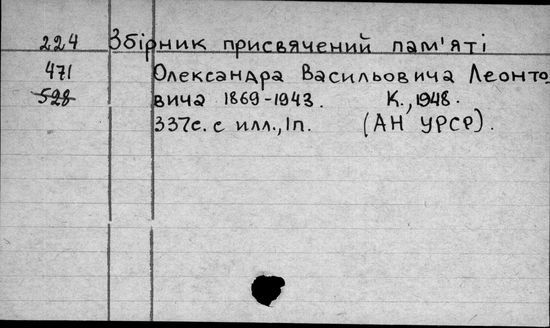 224 Збірник присвячений пам'яті
471 Олександра Васильовича Леонто-
528 вича 1869-1943. К., 1948.
337с. с илл., 1п. (АН УРСР).